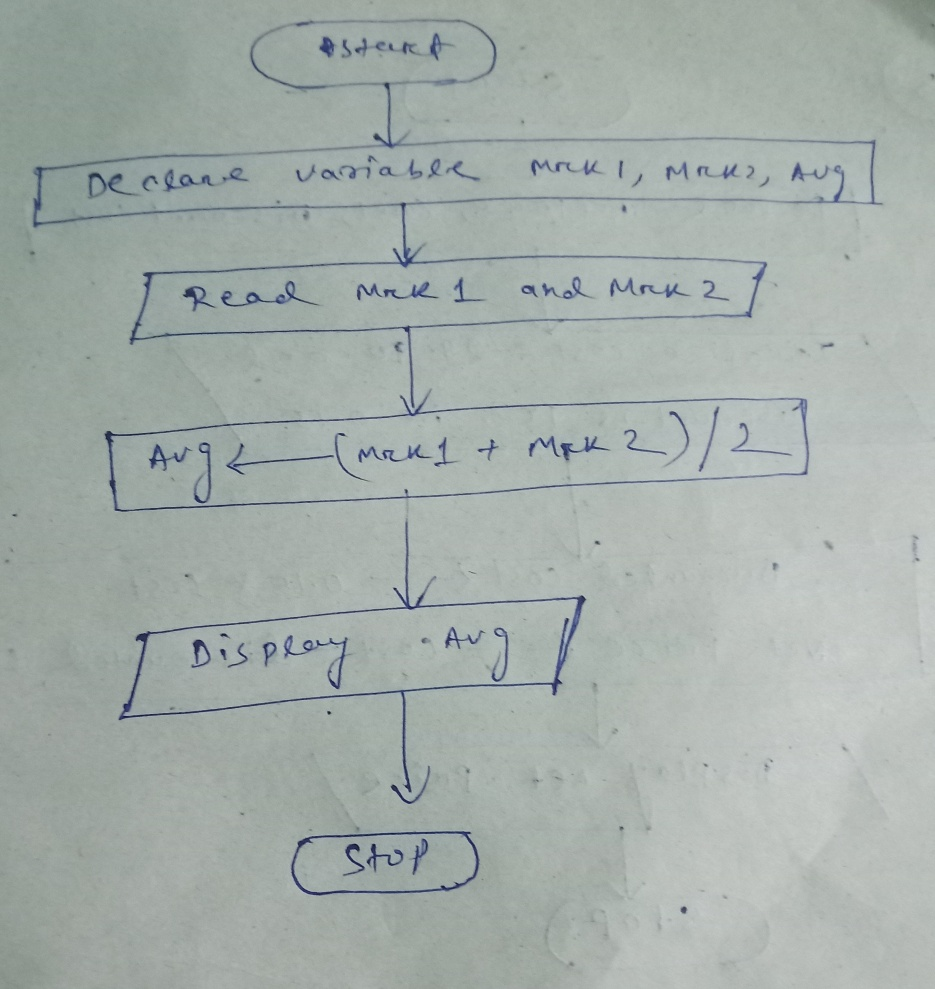 Start
Declare variable Mrk1, Mrk2, Avg
Read Mrk 1 and Mrk 2
Avg ← (Mrk1 + Mrk 2)/2
Display Avg
Stop